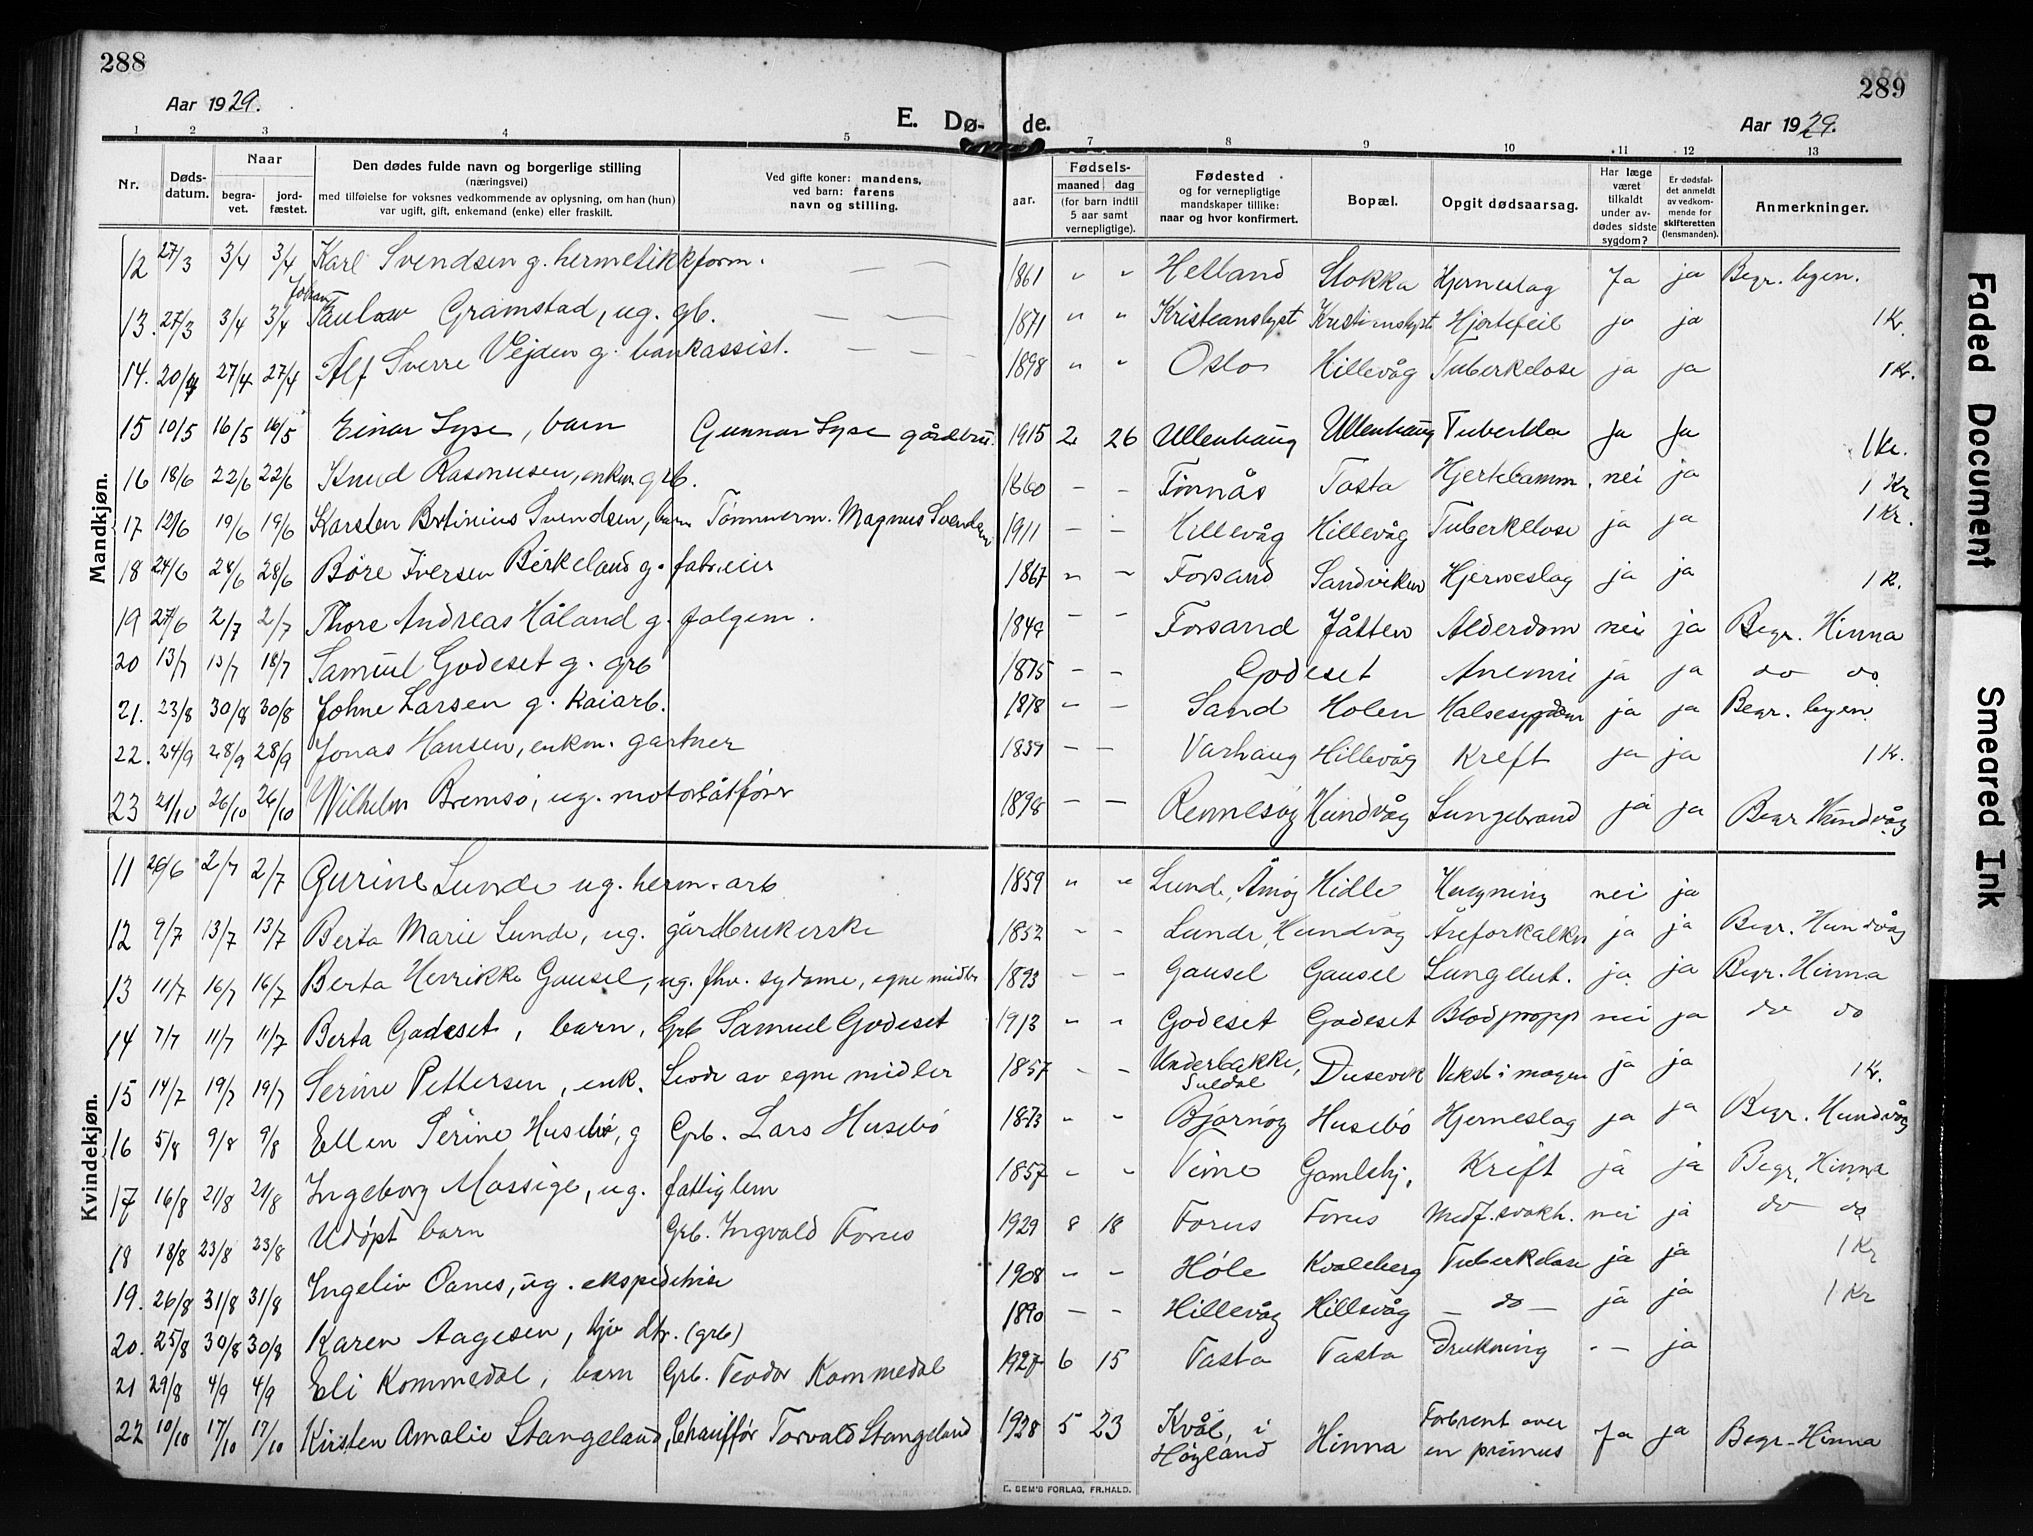 288
289
Aar 1929.
E. Dø- de.
Aar 1929.
1 2 3 4 5 7 8 9 10 11 12 13
Nr.
Dødsdatum.
Naar
begravet.
jordfæstet.
Den dødes fulde navn og borgerlige stilling
(næringsvei)
med tilføielse for voksnes vedkommende av oplysning, om han (hun)
var ugift, gift, enkemand (enke) eller fraskilt.
Ved gifte koner: mandens,
ved barn: farens
navn og stilling.
Fødsels-
aar.
maaned dag
(for barn indtil
5 aar samt
vernepligtige).
Fødested
og for vernepligtige
mandskaper tillike:
naar og hvor konfirmert.
Bopæl.
Opgit dødsaarsag.
Har læge
været
tilkaldt
under av-
dødes sidste
sygdom?
Er dødsfal-
det anmeldt
av vedkom-
mende for
skifteretten
(lensmanden).
Anmerkninger.
Mandkjøn.
12 27/3 3/4 3/4 Karl Svendsen g. hermetikkform. — — 1861 " " Hetland Stokka Hjerneslag Ja ja Begr. byen.
Johan
13. 27/3 3/4 3/4 Gramstad, ug. gb. — — 1871 " " Kristianslyst Kristianslyst Hjertefeil ja ja 1 Kr.
14. 20/4 27/4 27/4 Alf Sverre Vejden g. bankassist. — — 1898 " " Oslo Hillevåg Tuberkelose ja ja 1 Kr.
15 10/5 16/5 16/5 Einar Lyse, barn Gunnar Lyse gårdbru. 1915 2 26 Ullenhaug Ullenhaug Ja Ja 1 Kr.
16 18/6 22/6 22/6 Knud Rasmusen, enkm. grb. 1860 - - Tasta Hjertelamm. nei ja 1 Kr
17 12/6 19/6 19/6 Karsten Svendsen, barn Tømmerm. Magnus Svendsen 1911 - - Hillevåg Hillevåg Tuberkelose ja ja 1 Kr.
18 24/6 28/6 28/6 Børe Iversen Birkeland g. fabr.eier 1867 " " Forsand Sandviken Hjerneslag ja ja 1 K.
19 27/6 2/7 2/7 Thore Andreas Håland g. folgem. 1849 " " Forsand Jåtten Alderdom nei ja Begr. Hinna
20 13/7 18/7 Samuel Godeset g. grb 1875 - - Godeset Anemi ja ja do do
21. 23/8 30/8 30/8 Johne Larsen g. Kaiarb. 1878 - - Sand Holen Halsesygdom ja ja Begr. byen.
22. 24/9 28/9 28/9 Jonas Hansen, enkm. gartner 1839 - - Varhaug Hillevåg Kreft ja ja 1 Kr.
23 21/10 26/10 26/10 Wilhelm Bremsø, ug. motorbåtfører 1898 - - Rennesøy Hundvåg Lungebrand ja ja Begr Hundvåg
Kvindekjøn.
11 26/6 2/7 2/7 Gurine Lunde ug. herm. arb 1859 " " Lunde, Åmøy Hidle nei ja
12 9/7 13/7 13/7 Berta Marie Lunde, ug. gårdbrukerske 1852 - - Lunde, Hundvåg Åreforkalkn ja ja Begr. Hundvåg
13 11/7 16/7 16/7 Berta Henrikke Gausel, ug. fhv. sydame, egne midler 1893 - - Gausel Gausel Lungebet. ja. ja Begr. Hinna
14 7/7 11/7 11/7 Berta Godeset, barn, Grb Samuel Godeset 1913 " " Godeset Godeset Blodpropp nei ja do do
15 14/7 19/7 19/7 Serine Pettersen, enk. Levde av egne midler 1857 - - Underbakke, Suldal Dusevik Vekst i magen ja ja 1 Kr.
16 5/8 9/8 9/8 Ellen Serine Husebø, g Grb. Lars Husebø 1873 - - Bjørnøy Husebø Hjerneslag ja ja Begr. Hundvåg
17 16/8 21/8 21/8 Ingeborg Mossige, ug. fattiglem 1857 - - Time Gamlehj. Kreft ja ja Begr. Hinna
18 18/8 23/8 23/8 Udøpt barn Grb. Ingvald Forus 1929 8 18 Forus Forus Medf. svakh. nei ja do do
19. 26/8 31/8 31/8 Ingeliv Oanes, ug. ekspeditrise 1908 - - Høle Kvaleberg Tuberkelose ja ja 1 Kr
20. 25/8 30/8 30/8 Karen Aagesen, hjv dtr. (grb) 1890 - - Hillevåg Hillevåg - do - ja ja 1 Kr
21 29/8 4/9 4/9 Eli Kommedal, barn Grb. Teodor Kommedal 1927 6 15 Tasta Tasta Drukning - - ja
22 10/10 17/10 17/10 Kirsten Amalie Stangeland, Chauffør Torvald Stangeland 1928 5 23 Kvål, i Høyland Hinna Forbrent over en primus Ja ja Begr. Hinna
E. SEM'S FORLAG, FR.HALD.
Faded Document
Smeared Ink